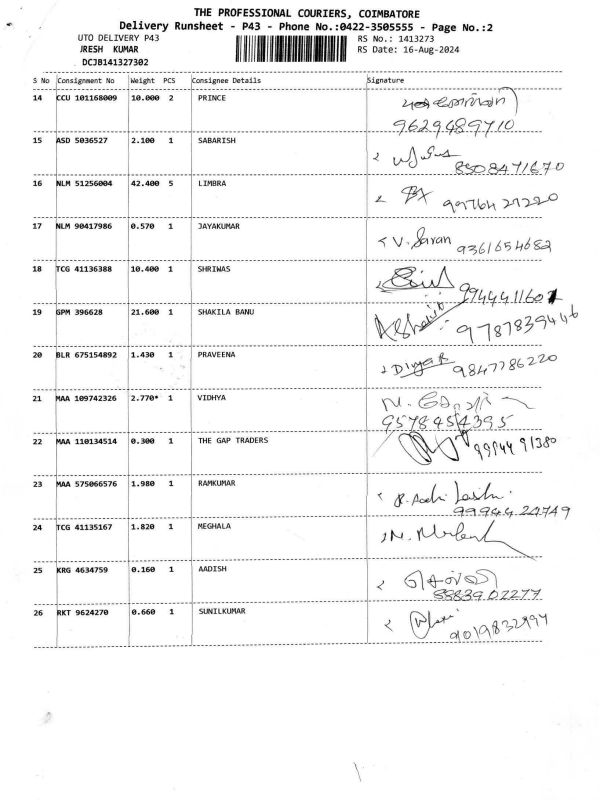 THE PROFESSIONAL COURIERS, COIMBATORE
Delivery Runsheet - P43 - Phone No.:0422-3505555 - Page No.:2
UTO DELIVERY P43 RS No.: 1413273
JRESH KUMAR RS Date: 16-Aug-2024
DCJB141327302
S No Consignment No Weight PCS Consignee Details Signature
14 CCU 101168009 10.000 2 PRINCE
9629489710
15 ASD 5036527 2.100 1 SABARISH
8508471670
16 NLM 51256004 42.400 5 LIMBRA
9976427220
17 NLM 90417986 0.570 1 JAYAKUMAR V. Saran 9361654682
18 TCG 41136388 10.400 1 SHRIWAS
19 GPM 396628 21.600 1 SHAKILA BANU
9787839446
20 BLR 675154892 1.430 1 PRAVEENA Divya R 9847786220
21 MAA 109742326 2.770* 1 VIDHYA
9578454395
22 MAA 110134514 0.300 1 THE GAP TRADERS 9994491380
23 MAA 575066576 1.980 1 RAMKUMAR
9994424749
24 TCG 41135167 1.820 1 MEGHALA
25 KRG 4634759 0.160 1 AADISH
8883902277
26 RKT 9624270 0.660 1 SUNILKUMAR
9019832994